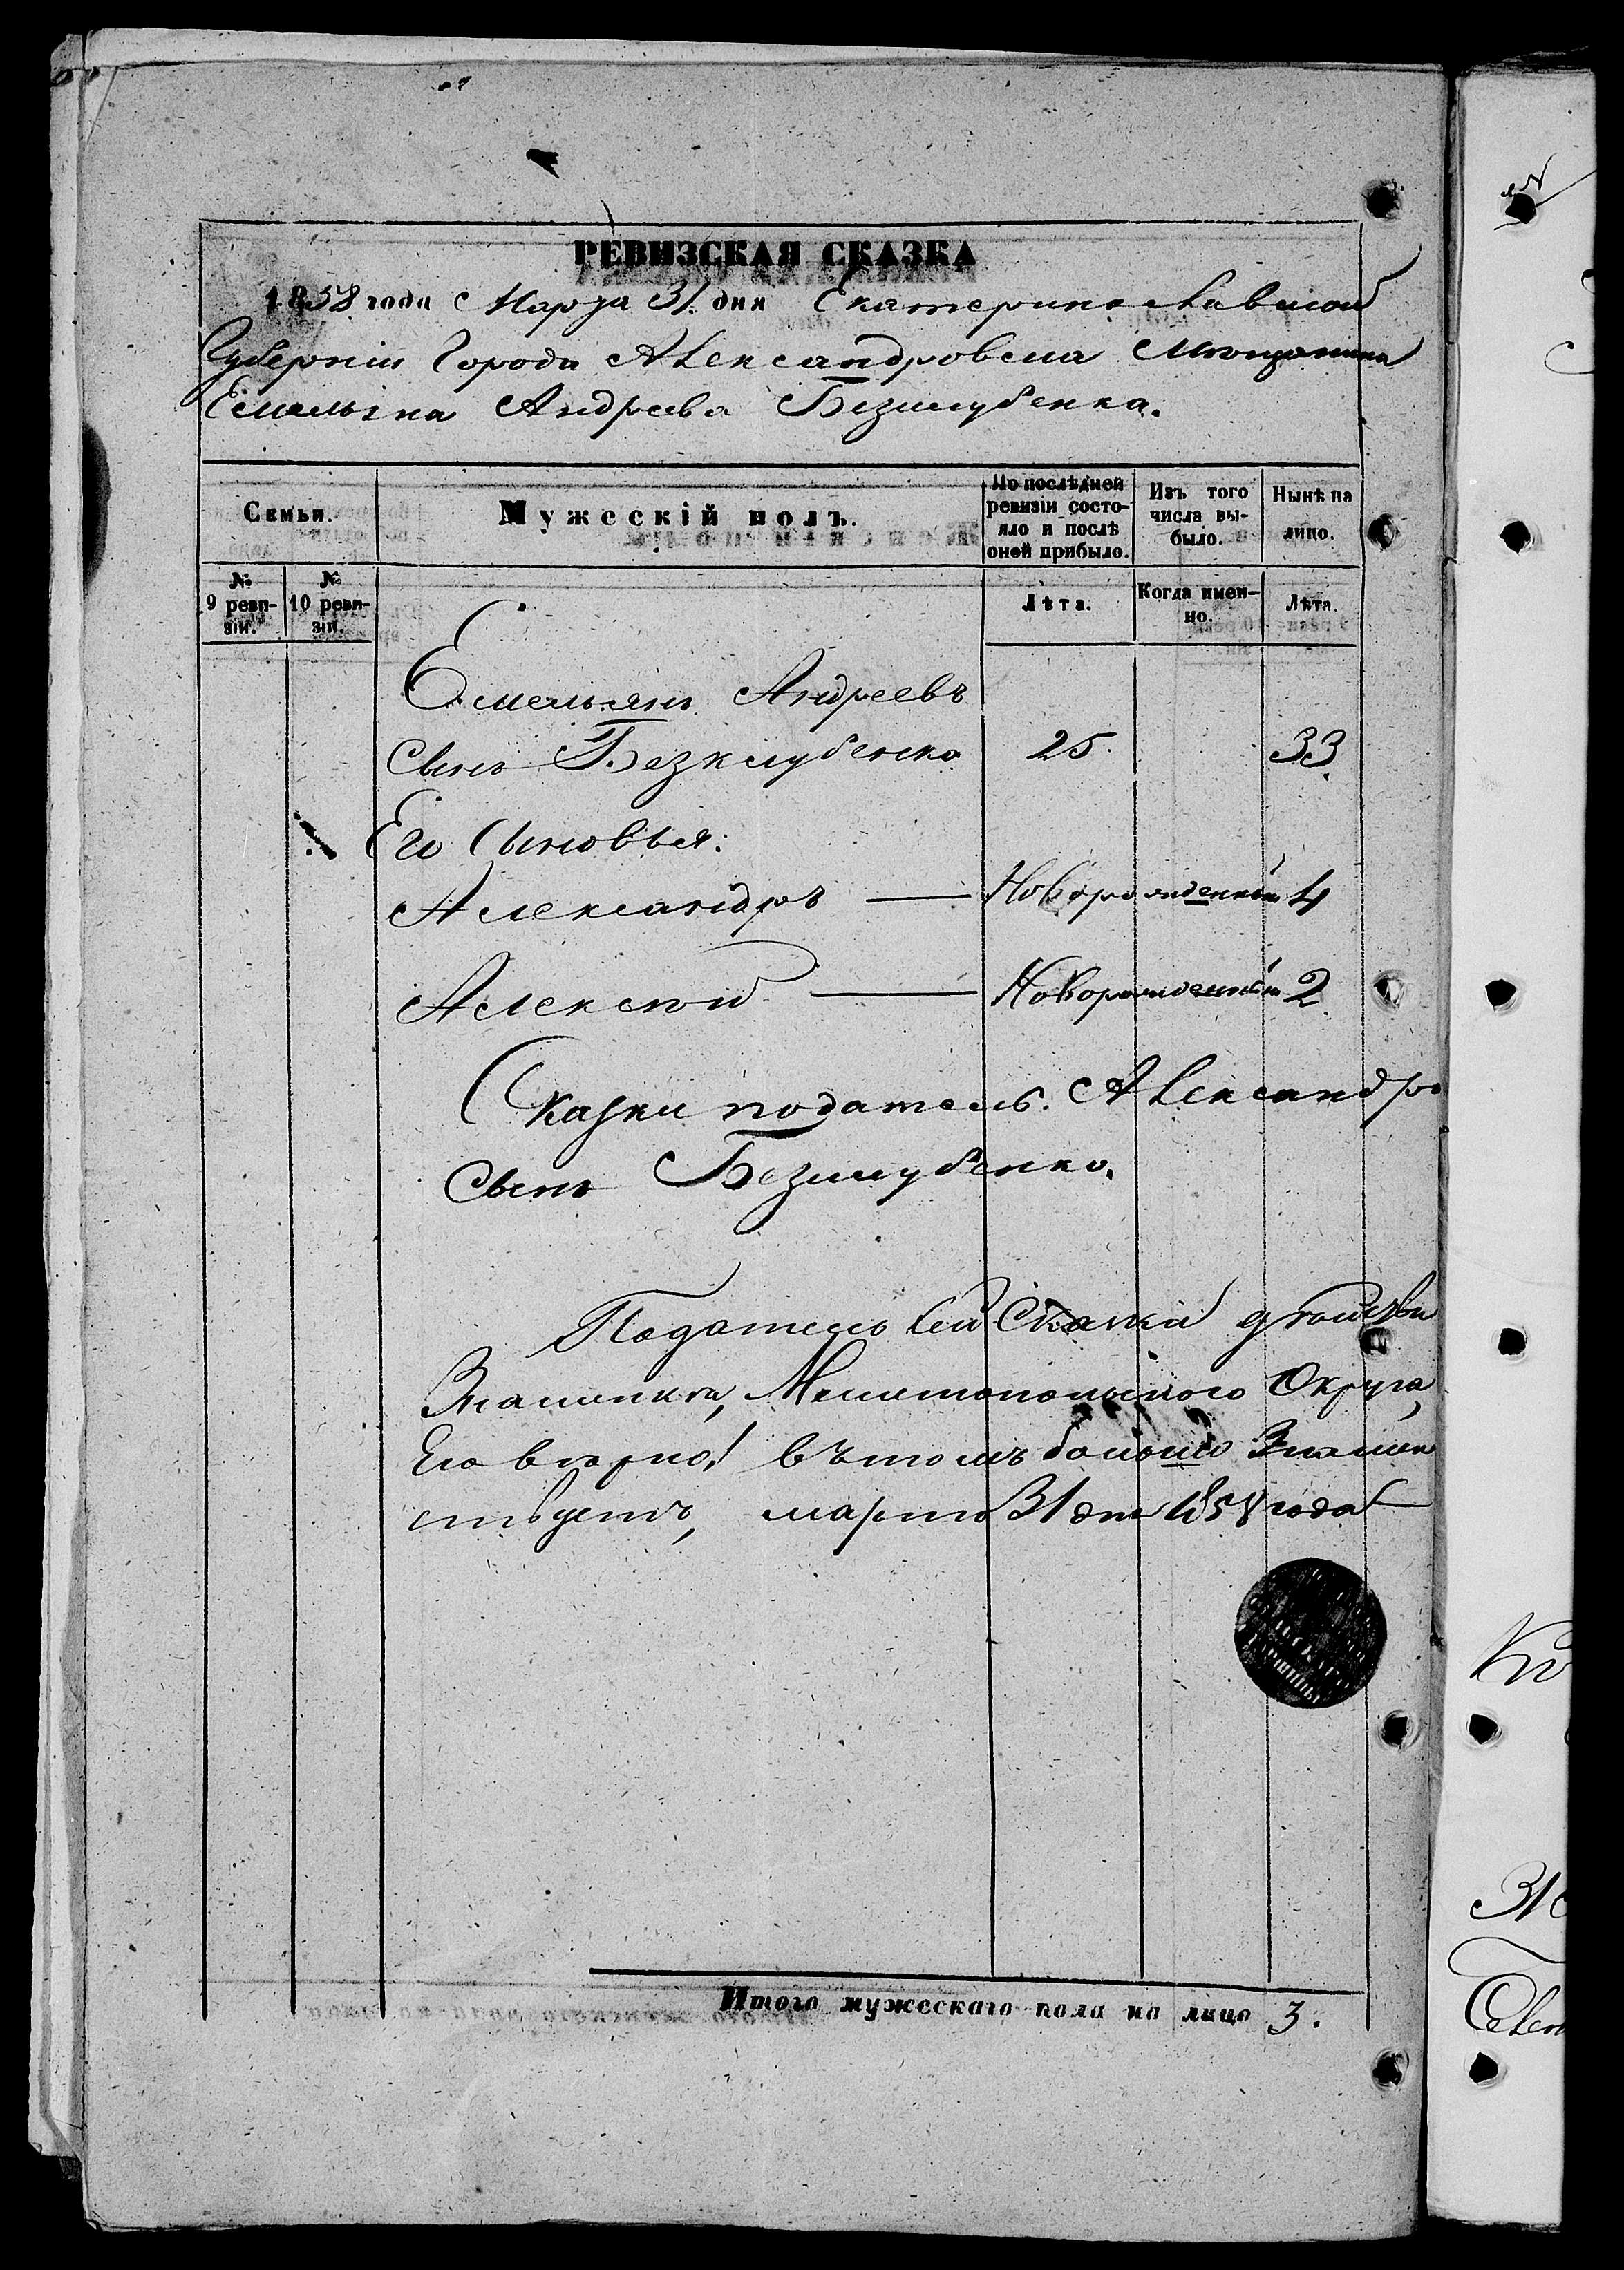 РЕВИЗСКАЯ СКАЗКА
1858 года Марта 31 дня Екатеринославской
Губерніи Города Александровска Мѣщанина
Емельяна Андреева Безклубенка.
Семьи.
Мужескій полъ.
По послѣдней ревизіи состояло и послѣ оной прибыло.
Изъ того числа выбыло.
Нынѣ на лицо.
№ 9 ревизіи.
№ 10 ревизіи.
Лѣта.
Когда именно.
Лѣта.
Емельянъ Андреевъ
Сынъ Безклубенко 25 33
Его Сыновья:
Александръ — Новорожденный 4
Алексѣй — Новорожденный 2
Сказки податель. Александръ
Сынъ Безклубенко.
Податель сей Сказки
Знаменка, Мелитопольскаго Округа,
въ томъ больше
марта 31 дня 1858 года
Итого мужескаго пола на лицо 3.
31